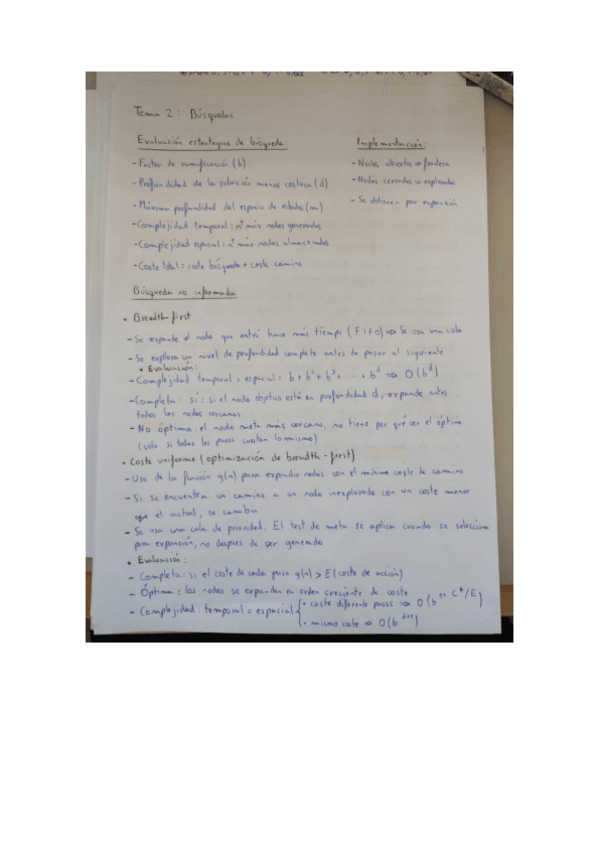 Tema 2: Búsquedas
Evaluación estrategias de búsqueda:
- Factor de ramificación (b)
- Profundidad de la solución menos costosa (d)
- Máxima profundidad del espacio de estados (m)
- Complejidad temporal: nº máx nodos generados
- Complejidad espacial: nº máx nodos almacenados
- Coste total: coste búsqueda + coste camino
Implementación:
- Nodos abiertos ⇒ frontera
- Nodos cerrados ⇒ explorados
- Se obtienen por expansión
Búsqueda no informada
• Breadth-first
- Se expande el nodo que entró hace más tiempo (FIFO) ⇒ Se usa una cola
- Se explora un nivel de profundidad completo antes de pasar al siguiente
• Evaluación:
- Complejidad temporal = espacial: b + b² + b³ + ... + b^d ⇒ O(b^d)
- Completa: sí: si el nodo objetivo está en profundidad d, expande antes
todos los nodos cercanos
- No óptima: el nodo meta más cercano, no tiene por qué ser el óptimo
(solo si todos los pasos cuestan lo mismo)
• Coste uniforme (optimización de breadth-first)
- Uso de la función g(n) para expandir nodos con el mínimo coste de camino
- Si se encuentra un camino a un nodo inexplorado con un coste menor
que el actual, se cambia
- Se usa una cola de prioridad. El test de meta se aplica cuando se selecciona
para expansión, no después de ser generado
• Evaluación:
- Completa: si el coste de cada paso g(n) > E (coste de acción)
- Óptima: los nodos se expanden en orden creciente de coste
- Complejidad: temporal = espacial { • coste diferente pasos ⇒ O(b^1+ C*/E)
• mismo coste ⇒ O(b^d+1)